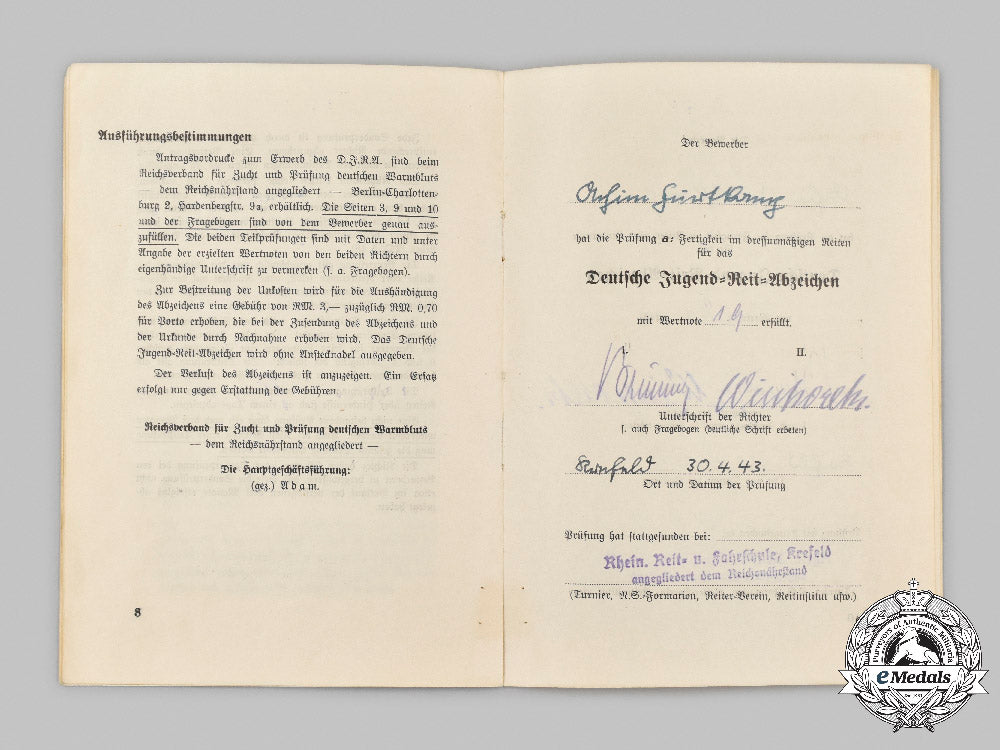 Ausführungsbestimmungen
Antragsvordrucke zum Erwerb des D.J.R.A. sind beim
Reichsverband für Zucht und Prüfung deutschen Warmbluts
— dem Reichsnährstand angegliedert — Berlin-Charlotten-
burg 2, Hardenbergstr. 9a, erhältlich. Die Seiten 3, 9 und 10
und der Fragebogen sind von dem Bewerber genau aus-
zufüllen. Die beiden Teilprüfungen sind mit Daten und unter
Angabe der erzielten Wertnoten von den beiden Richtern durch
eigenhändige Unterschrift zu vermerken (s. a. Fragebogen).
Zur Bestreitung der Unkosten wird für die Aushändigung
des Abzeichens eine Gebühr von RM. 3,— zuzüglich RM. 0,70
für Porto erhoben, die bei der Zusendung des Abzeichens und
der Urkunde durch Nachnahme erhoben wird. Das Deutsche
Jugend-Reit-Abzeichen wird ohne Anstecknadel ausgegeben.
Der Verlust des Abzeichens ist anzuzeigen. Ein Ersatz
erfolgt nur gegen Erstattung der Gebühren.
Reichsverband für Zucht und Prüfung deutschen Warmbluts
— dem Reichsnährstand angegliedert —
Die Hauptgeschäftsführung:
(gez.) Adam.
8
Der Bewerber
Achim
hat die Prüfung a: Fertigkeit im dressurmäßigen Reiten
für das
Deutsche Jugend-Reit-Abzeichen
mit Wertnote 19 erfüllt.
II.
Unterschrift der Richter
s. auch Fragebogen (deutliche Schrift erbeten)
Krefeld 30.4.43.
Ort und Datum der Prüfung
Prüfung hat stattgefunden bei:
Rhein. Reit- u. Fahrschule, Krefeld
angegliedert dem Reichsnährstand
(Turnier, N.S.-Formation, Reiter-Verein, Reitinstitut usw.)
Purveyors of Authentic Militaria
eMedals